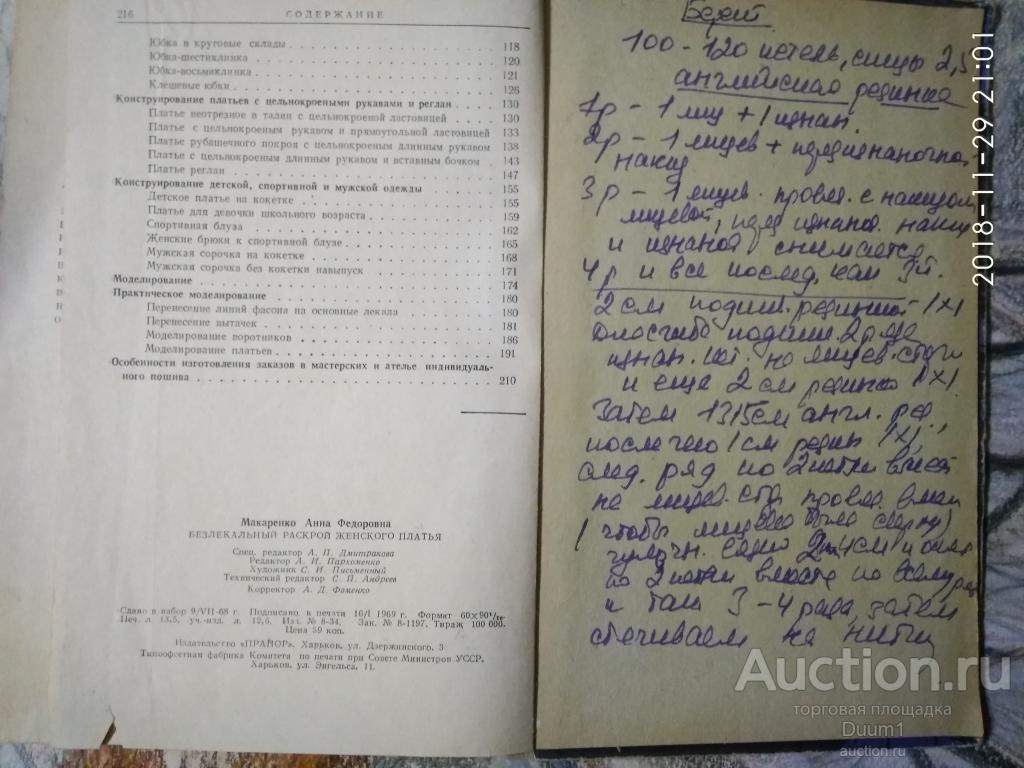 216 СОДЕРЖАНИЕ
Юбка в круговые склады 118
Юбка-шестиклинка 120
Юбка-восьмиклинка 121
Клешевые юбки 126
Конструирование платьев с цельнокроеными рукавами и реглан 130
Платье неотрезное в талии с цельнокроеной ластовицей 130
Платье с цельнокроеным рукавом и прямоугольной ластовицей 133
Платье рубашечного покроя с цельнокроеным длинным рукавом 138
Платье с цельнокроеным длинным рукавом и вставным бочком 143
Платье реглан 147
Конструирование детской, спортивной и мужской одежды 155
Детское платье на кокетке 155
Платье для девочки школьного возраста 159
Спортивная блуза 162
Женские брюки к спортивной блузе 165
Мужская сорочка на кокетке 168
Мужская сорочка без кокетки навыпуск 171
Моделирование 174
Практическое моделирование 180
Перенесение линий фасона на основные лекала 180
Перенесение вытачек 181
Моделирование воротников 186
Моделирование платьев 191
Особенности изготовления заказов в мастерских и ателье индивидуаль-
ного пошива 210
Макаренко Анна Федоровна
БЕЗЛЕКАЛЬНЫЙ РАСКРОЙ ЖЕНСКОГО ПЛАТЬЯ
Спец. редактор А. П. Дмитракова
Редактор А. И. Пархоменко
Художник С. И. Письменный
Технический редактор С. П. Андреев
Корректор А. Д. Фоменко
Сдано в набор 9/VII-68 г. Подписано к печати 16/I 1969 г. Формат 60×90¹/₁₆.
Печ. л. 13,5, уч.-изд. л. 12,6. Изд. № 8-34. Зак. № 8-1197. Тираж 100 000.
Цена 59 коп.
Издательство «ПРАПОР». Харьков, ул. Дзержинского, 3
Типоофсетная фабрика Комитета по печати при Совете Министров УССР.
Харьков, ул. Энгельса, 11.
Берет
100-120 петель, спицы 2,5
английская резинка
1р - 1 лиц + 1 изнан.
2р - 1 лицев + перед изнаночной
накид
3р - 1 лицев. провяз. с накидом
лицевой, перед изнаноч. накид
и изнаноч снимается
4р и все послед. как 3й.
2 см подшив. резинкой 1х1
подшив. 2 ряда
изнан. пет. по лицев. стороне
и еще 2 см резинка 1х1.
Затем 13 15 см англ. рез.,
после чего 1 см резин 1х1,
след. ряд по 2 петли вмест
на лицев. стр. провяз. вмест
(чтобы лицевая была сверху)
чулочн. 2-4 см и опять
по 2 петли вместе по всему ряду
и так 3-4 ряда, затем
стягиваем на нитку
2018-11-29 21:01
Auction.ru
торговая площадка
Duum1
auction.ru